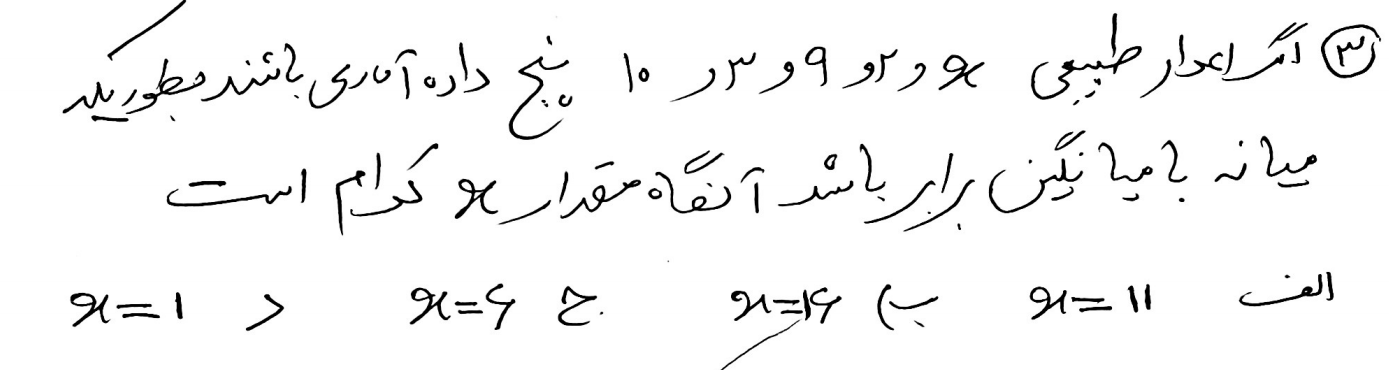 ③ اگر اعداد طبیعی x و ۲ و ۹ و ۳ و ۱۰ پنج داده آماری باشند بطوریکه
میانه با میانگین برابر باشد آنگاه مقدار x کدام است
الف x=۱۱ ب) x=۱۶ ج x=۶ د x=۱